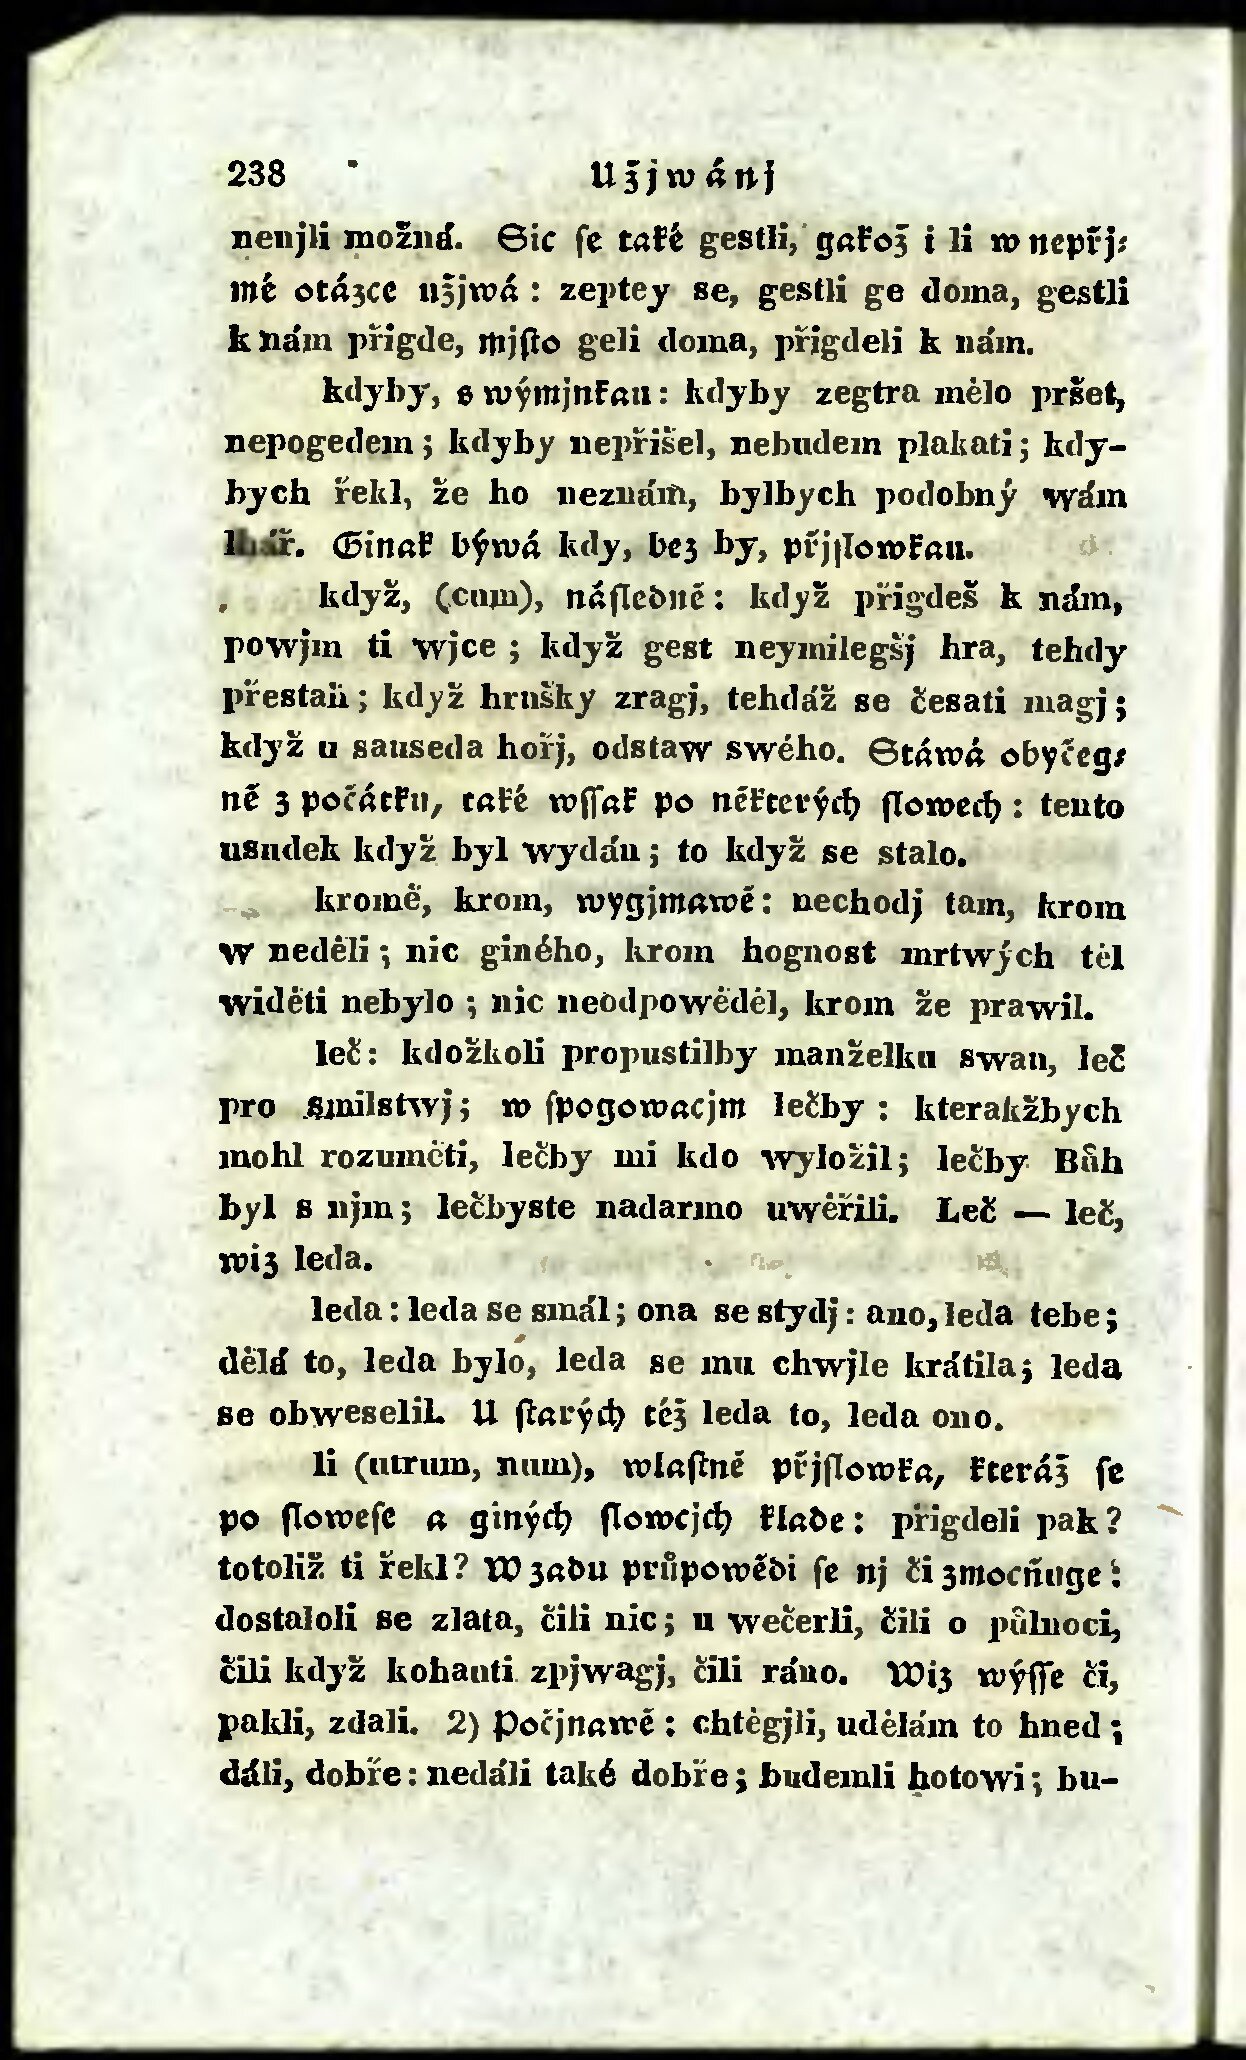 238 Užjwánj
nenjli možná. Sic se také gestli, gakož i li w nepřj-
mé otázce užjwá : zeptey se, gestli ge doma, gestli
k nám přigde, mjsto geli doma, přigdeli k nám.
kdyby, s wýmjnkau : kdyby zegtra mělo pršet,
nepogedem ; kdyby nepřišel, nebudem plakati ; kdy-
bych řekl, že ho neznám, bylbych podobný wám
lhář. Ginak býwá kdy, bez by, přjslowkau.
když, (cum), následně : když přigdeš k nám,
powjm ti wjce ; když gest neymilegšj hra, tehdy
přestaň ; když hrušky zragj, tehdáž se česati magj ;
když u sauseda hořj, odstaw swého. Stáwá obyčeg-
ně z počátku, také wssak po některých slowech : tento
usudek když byl wydán ; to když se stalo.
kromě, krom, wygjmawě : nechodj tam, krom
w neděli ; nic giného, krom hognost mrtwých těl
widěti nebylo ; nic neodpowěděl, krom že prawil.
leč : kdožkoli propustilby manželku swau, leč
pro smilstwj ; w spogowacjm lečby : kterakžbych
mohl rozuměti, lečby mi kdo wyložil ; lečby Bůh
byl s njm ; lečbyste nadarmo uwěřili. Leč — leč,
wiz leda.
leda : leda se smál ; ona se stydj : ano, leda tebe ;
dělá to, leda bylo, leda se mu chwjle krátila ; leda
se obweselil. U starých též leda to, leda ono.
li (utrum, num), wlastně přjslowka, kteráž se
po slowese a giných slowcjch klade : přigdeli pak ?
totoliž ti řekl ? W zadu průpowědi se nj či zmocňuge :
dostaloli se zlata, čili nic ; u wečerli, čili o půlnoci,
čili když kohauti zpjwagj, čili ráno. Wiz wýsse či,
pakli, zdali. 2) Počjnawě : chtěgjli, udělám to hned ;
dáli, dobře : nedáli také dobře ; budemli hotowi ; bu-